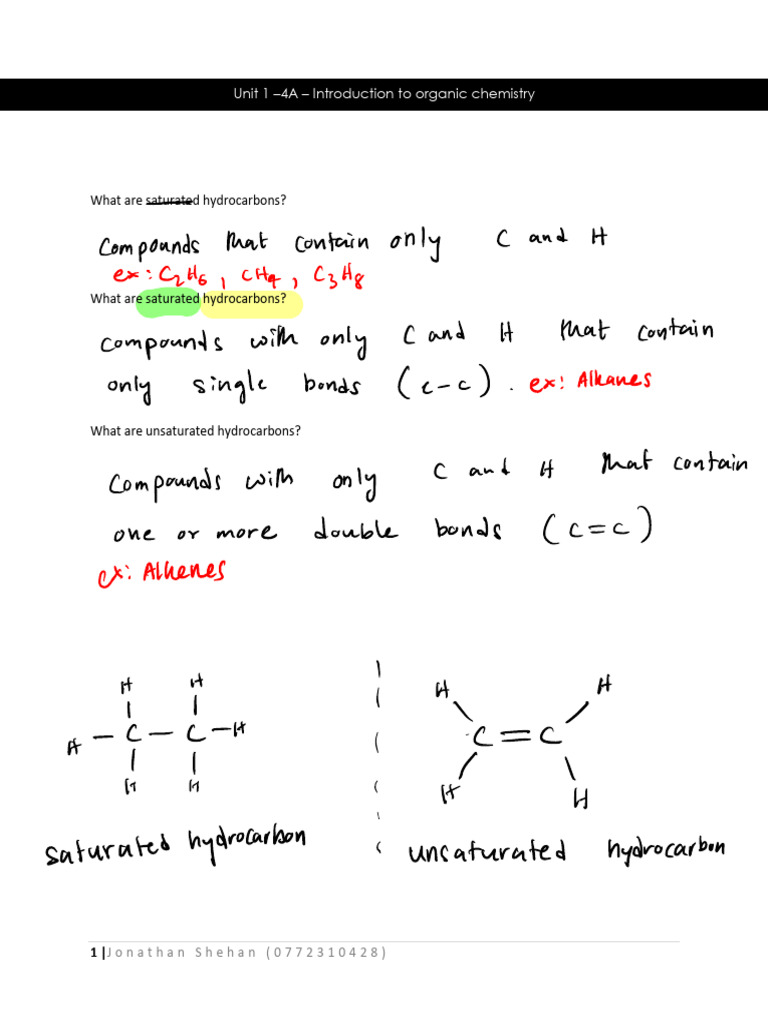 Unit 1 –4A – Introduction to organic chemistry
What are saturated hydrocarbons?
Compounds that contain only C and H
ex: C₂H₆, CH₄, C₃H₈
What are saturated hydrocarbons?
Compounds with only C and H that contain
only single bonds (c-c). ex: Alkanes
What are unsaturated hydrocarbons?
Compounds with only C and H that contain
one or more double bonds (c=c)
ex: Alkenes
H H H H
H – C – C – H C = C
H H H H
saturated hydrocarbon unsaturated hydrocarbon
1 | Jonathan Shehan (0772310428)